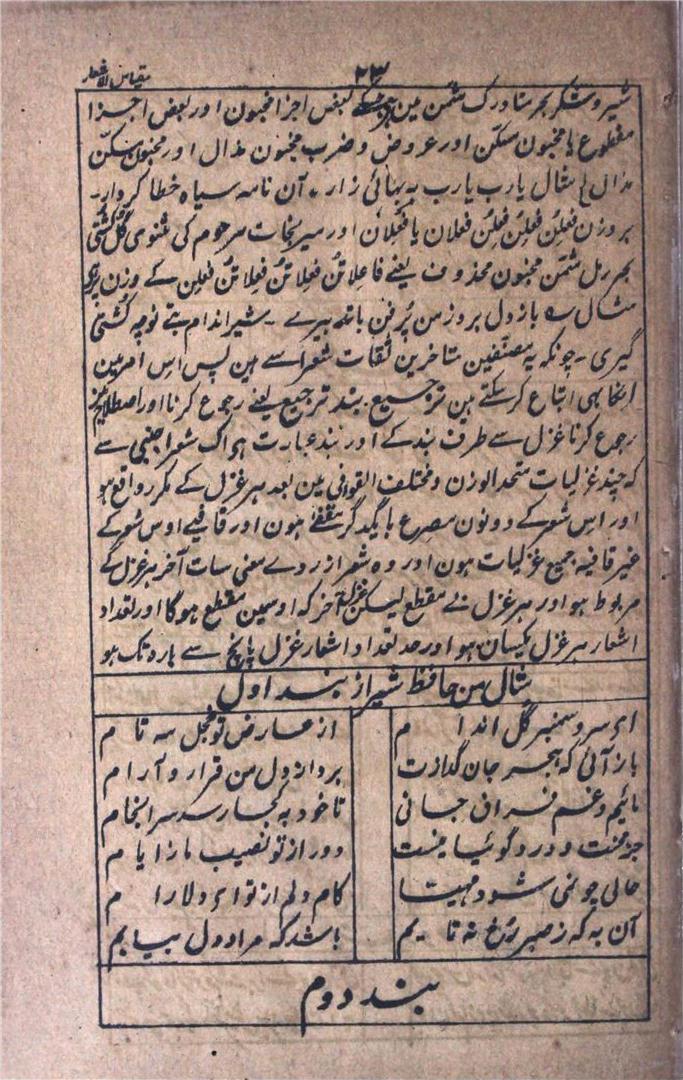 ۲۳
مقیاس الاشعار
شیر و شکر بحر متدارک مثمن مین ہے جسکے بعض اجزا مخبون اور بعض اجزا
مقطوع یا مخبون مسکن اور عروض و ضرب مخبون مذال اور مخبون مسکن
مذال مثال یارب یارب بہ بہائی زار ۔ آن نامہ سیاہ خطا کردار۔
بروزن فعلن فعلن فعلن فعلان یا فعلان اور میر نجات مرحوم کی مثنوی گل کشتی
بحر رمل مثمن مخبون محذوف یعنے فاعلاتن فعلاتن فعلاتن فعلن کے وزن پر ہے
مثال بازدل بروز من پرفن باتدبیرے ۔ شیر اندام بتے نوچہ کشتی
گیری ۔ چونکہ یہ مصنفین متاخرین ثقات شعرا سے ہین پس اس امر مین
انکا بھی اتباع کرسکتے ہین ترجیع بند ترجیع یعنے رجوع کرنا اور اصطلاح مین
رجوع کرنا غزل سے طرف بند کے اور بند عبارت ہی اک شعر اجنبی سے
کہ چند غزلیات متحد الوزن و مختلف القوافی مین بعد ہر غزل کے مکرر واقع ہو
اور اس شعر کے دونون مصرع بایکدگر مقفے ہون اور قافیے اوس شعر کے
غیر قافیہ جمیع غزلیات ہون اور وہ شعر از روے معنی سات آخر ہر غزل کے
مربوط ہو اور ہر غزل بے مقطع لیکن غزل آخر کہ اوسمین مقطع ہوگا اور تعداد
اشعار ہر غزل یکسان ہو اور حد تعداد اشعار غزل پانچ سے بارہ تک ہو
مثال من حافظ شیراز بند اول
ای سرو سمنبر گل اندام از عارض تو خجل مہ تام
بازآئی کہ ہجر جان گدازت برد از دل من قرار و آرام
مائیم و غم فراق جانی تا خود بہ کجا رسد سرانجام
جز محنت و درد گوئیا نیست دور از تو نصیب ما ز ایام
حالی چو نمی شود مہیا کام دلم از تو ای دلارام
آن بہ کہ ز صبر رخ نہ تابیم باشد کہ مراد دل بیابم
بند دوم